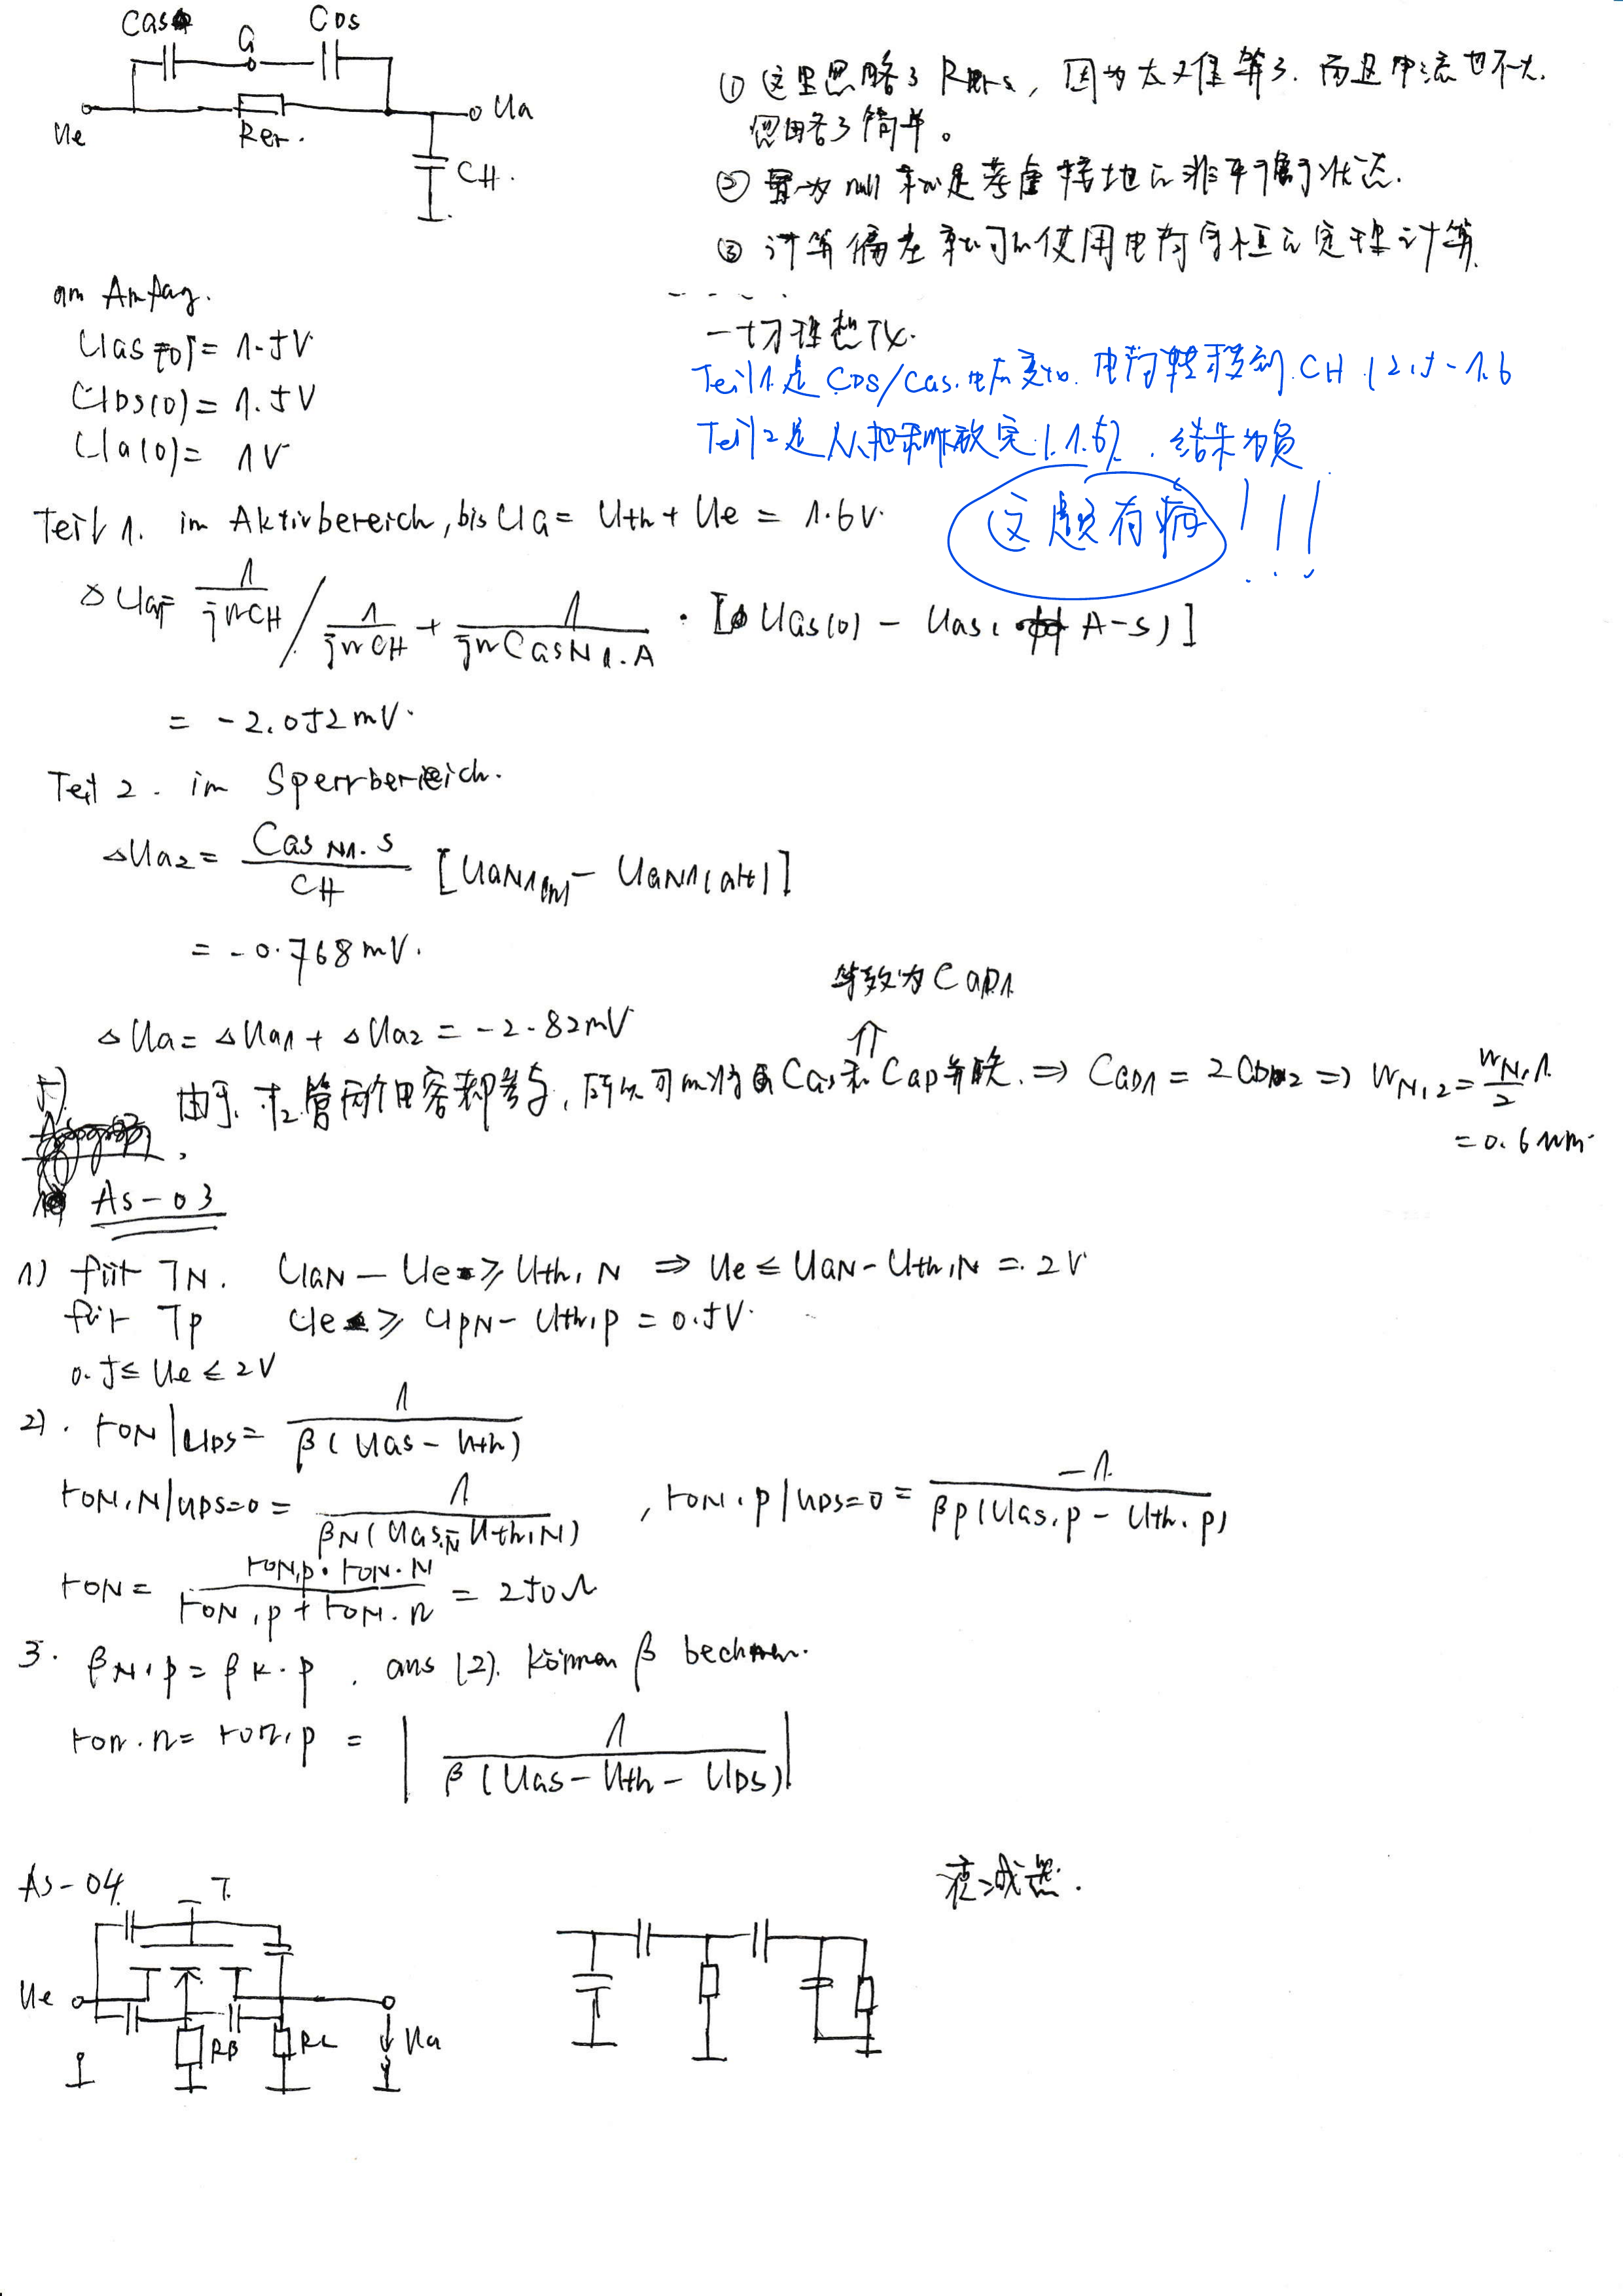 CGS
G
CDS
Ue
Rer.
Ua
CH.
① 这里忽略了 Rers, 因为太难算了. 而且电流也不大.
忽略了简单。
② 置为 null 就是考虑接地的非平衡状态.
③ 计算偏差就可以使用电荷守恒的定理计算.
- - - -
一切理想化.
am Anfag.
UGS(0) = 1.5V
UDS(0) = 1.5V
Ua(0) = 1V
Teil1是 CDS/CGS. 电荷转移到 CH (2.5-1.6
Teil2是从 放完(1.6). 结果为负
这题有病!!!
Teil 1. im Aktivbereich, bis UG = Uth + Ue = 1.6V.
ΔUa1 = 1/jwCH / 1/jwCH + 1/jwCGSN1.A · [UGS(0) - UGS(A-S)]
= -2.052mV.
Teil 2. im Sperrbereich.
ΔUa2 = CGSN1.S / CH [UGN1 - UGN1(alt)]
= -0.768mV.
等效为 CGD1
⇑
ΔUa = ΔUa1 + ΔUa2 = -2.82mV
5)
由于. T2管两个电容都参与, 所以可以将 CGS和CGD并联. ⇒ CGD1 = 2CGN2 ⇒ WN,2 = WN,1/2
= 0.6um.
AS-03
1) für TN. UGN - Ue ≥ Uth,N ⇒ Ue ≤ UGN - Uth,N = 2V
für Tp Ue ≥ UPN - Uth,p = 0.5V.
0.5 ≤ Ue ≤ 2V
2). rON|UDS = 1 / β(UGS - Uth)
rON,N|UDS=0 = 1 / βN(UGS,N - Uth,N) , rON,p|UDS=0 = -1 / βp(UGS,p - Uth,p)
rON = rON,p · rON,N / rON,p + rON,n = 250Ω
3. βN,p = βK.p . aus (2). können β bechnen.
ron.n = ron,p = | 1 / β(UGS - Uth - UDS) |
AS-04.
T.
Ue
RB
RL
Ua
变成器.